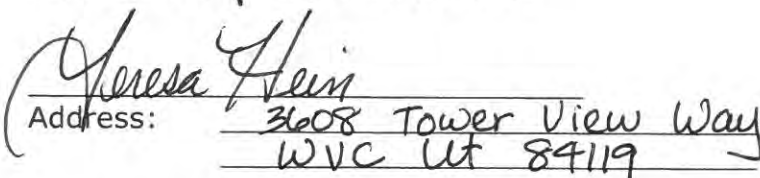 Teresa Hein
Address: 3608 Tower View Way
WVC Ut 84119